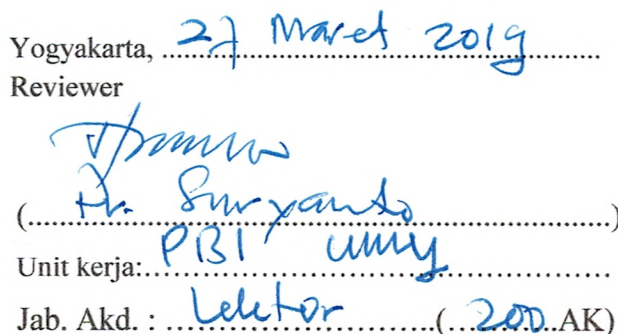 Yogyakarta, 27 Maret 2019
Reviewer
(Dr. Suryanto)
Unit kerja: PBI UMY
Jab. Akd. : Lektor (200 AK)